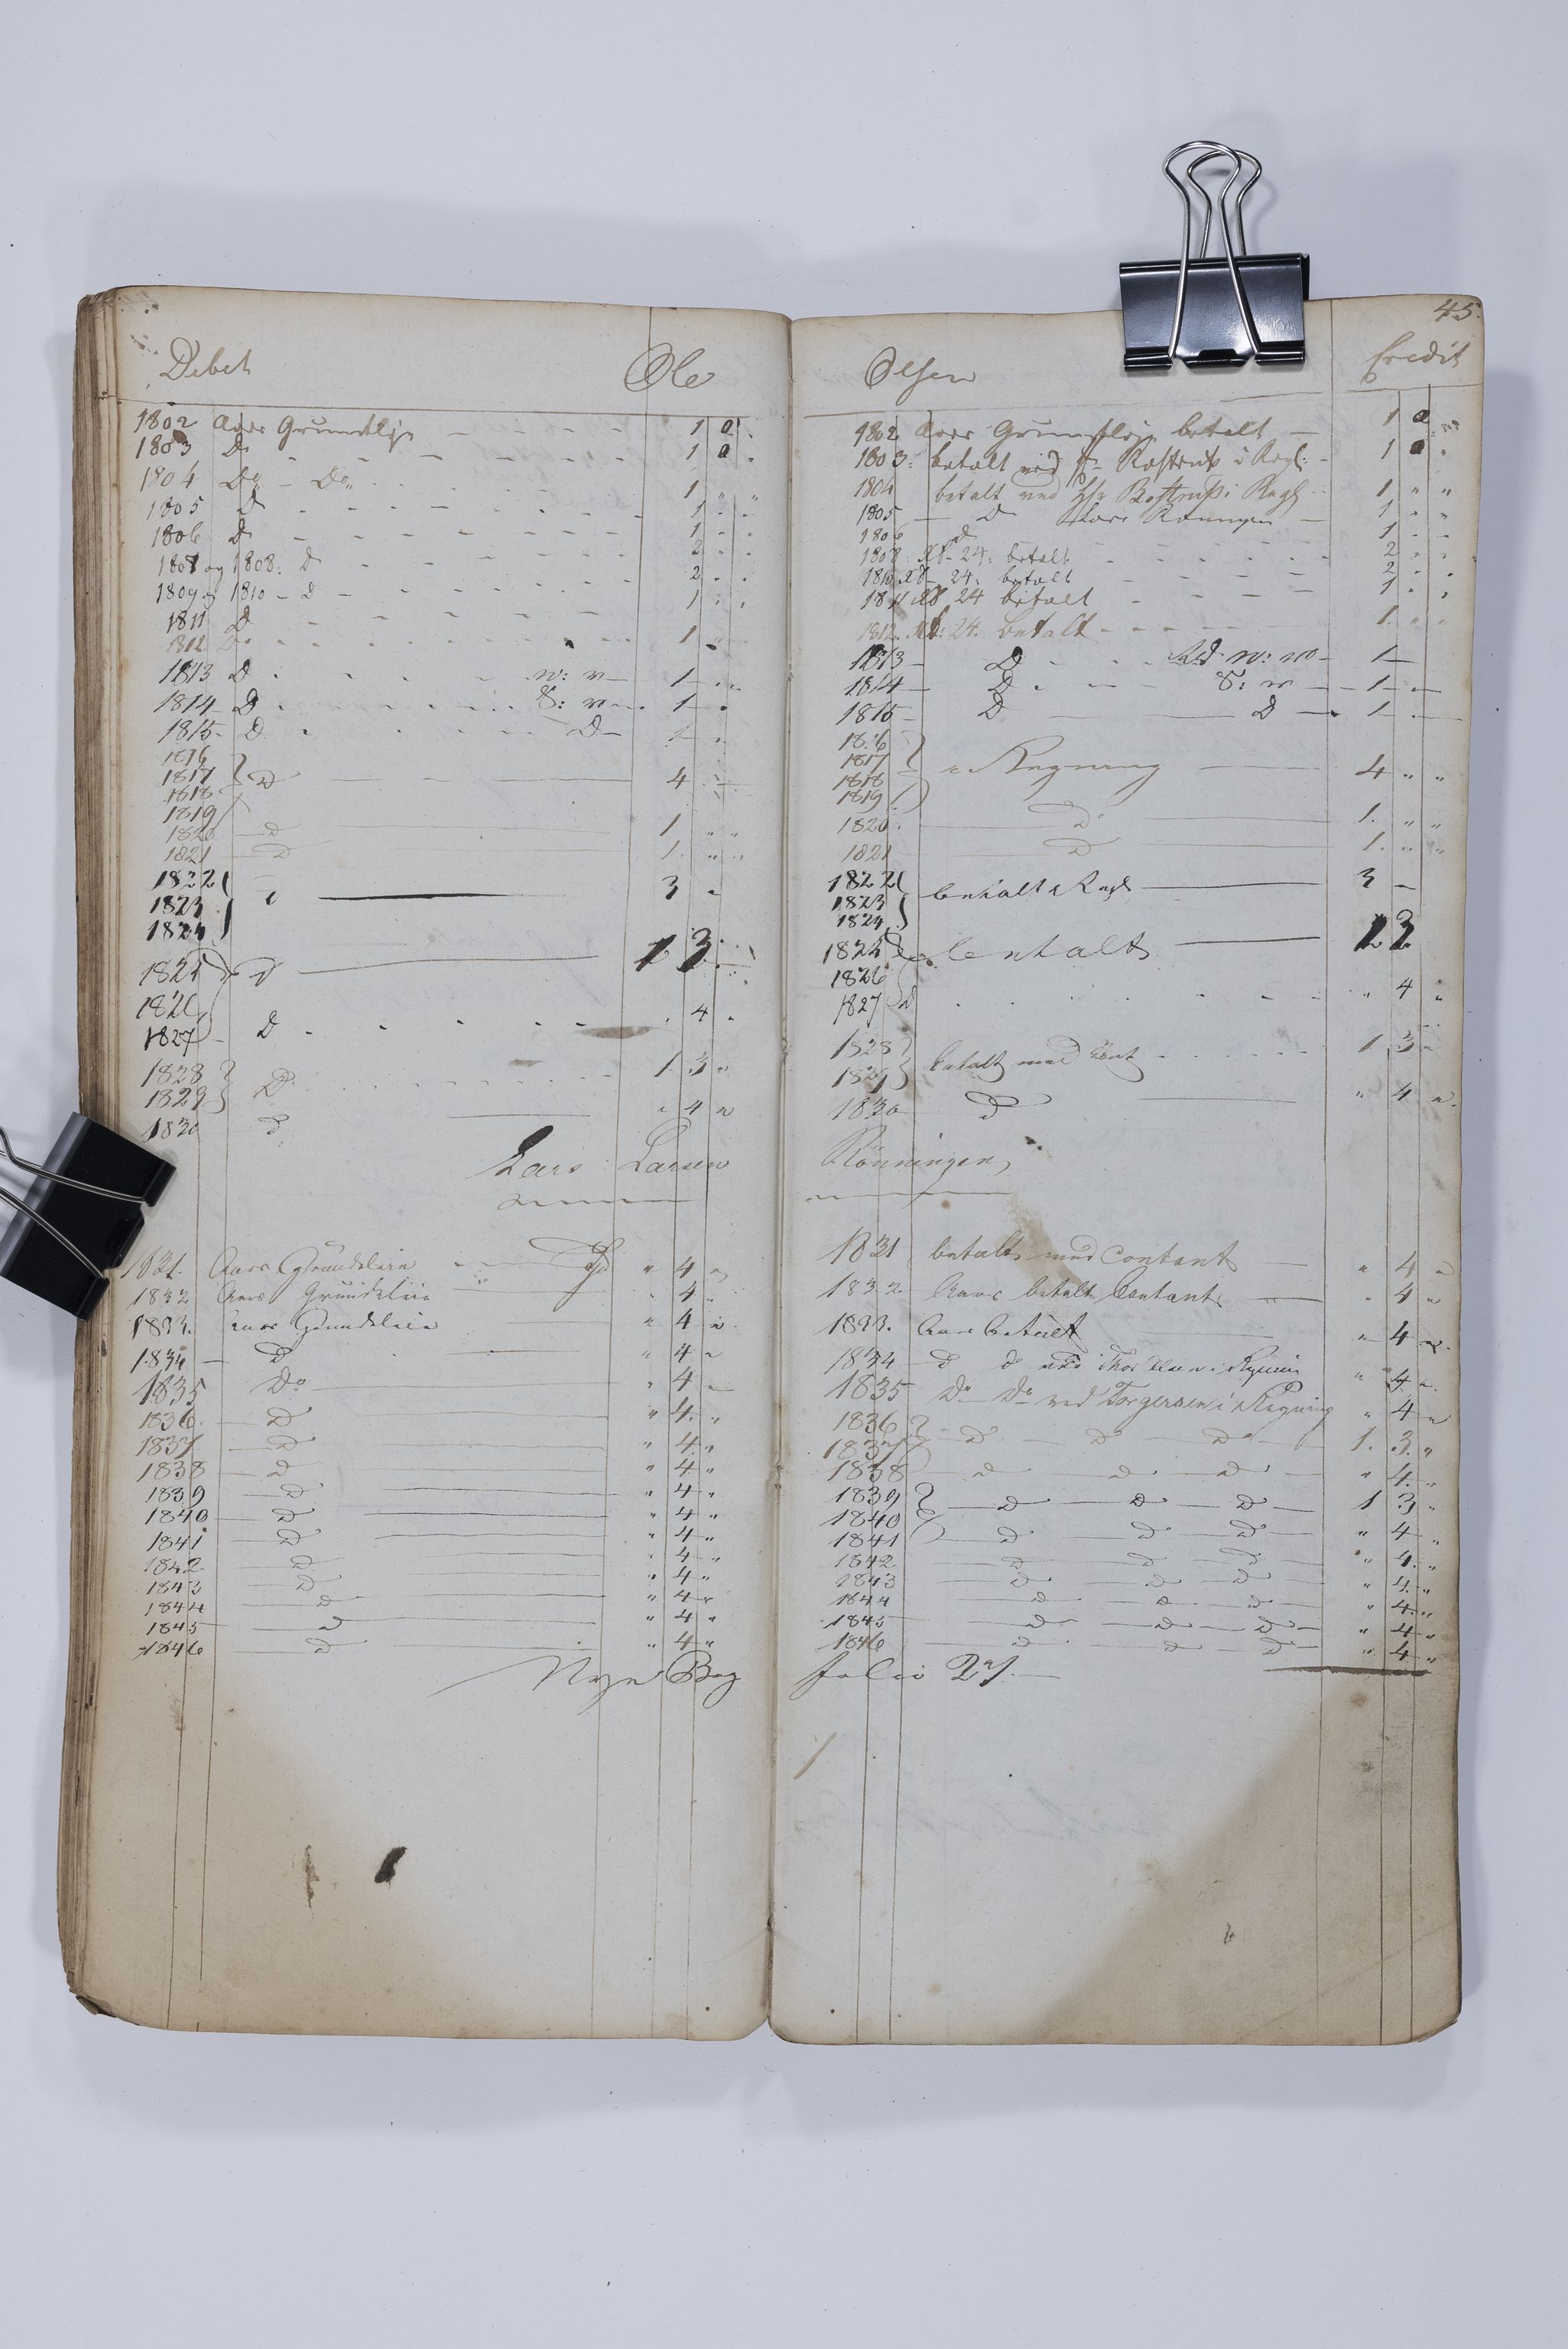 45.
Debet Ole
1802 Aars Grundleje 1 0 "
1803 Do 1 0 "
1804 Do - Do 1 " "
1805 D 1 " "
1806 D 1 " "
1807 og 1808. D 2 " "
1809 og 1810 - D 2 " "
1811 D 1 " "
1812 D 1 "
1813 D n: v 1 "
1814 D S: v 1 "
1815 D D 1 "
1816
1817 D 4
1818
1819
1820 D 1 " "
1821 D 1. " "
1822
1823 3 "
1824
1825 D 1 3
1826
1827 D " 4 "
1828
1829 D 1 3 "
1830 D " 4 "
Lars Larsen
1831. Aars Grundleie " 4 "
1832 Aars Grundleie " 4 "
1833. Aars Grundleie " 4 "
1834 D " 4 "
1835 Do " 4 "
1836. D " 4. "
1837 D " 4. "
1838 D " 4 "
1839 D " 4 "
1840 D " 4 "
1841 D " 4 "
1842 D " 4 "
1843 D " 4 "
1844 D " 4 "
1845 D " 4 "
1846 D " 4 "
Nye Bog
Olsen Credit
1802 Aars Grundleje betalt 1 0 "
1803. betalt ved Hr Rostrup i Regl: 1 0 "
1804 betalt ved Hr Rostrup i Regl 1 " "
1805 D Lars Rønningen 1 " "
1806 D 1 "
1808 24. betalt 2 " "
1810 24. betalt 2 " "
1811 24 betalt 1 " "
1812. 24. betalt 1. " "
1813 D 1
1814 D S: v 1 "
1815 D D 1 "
1816
1817 Regning 4 " "
1818
1819
1820 Do 1. " "
1821 D 1. " "
1822 betalt i Regl 3
1823
1824
1825 betalt 1 3
1826
1827 D " 4 "
1828 betalt med Cont 1 3 "
1829
1830 D " 4 "
Rønningen,
1831 betalt med Contant " 4 "
1832 Aars betalt Contant " 4 "
1833. Aar betalt " 4 "
1834 D D ved " 4 "
1835 Do Do ved Torgersen i Regning " 4 "
1836 D D D 1. 3. "
1837
1838 D D D " 4. "
1839 D D D 1 3 "
1840
1841 D D D " 4 "
1842 D D D " 4. "
1843 D D D " 4. "
1844 D D D " 4. "
1845 D D D " 4 "
1846 D D D " 4 "
folio 27.